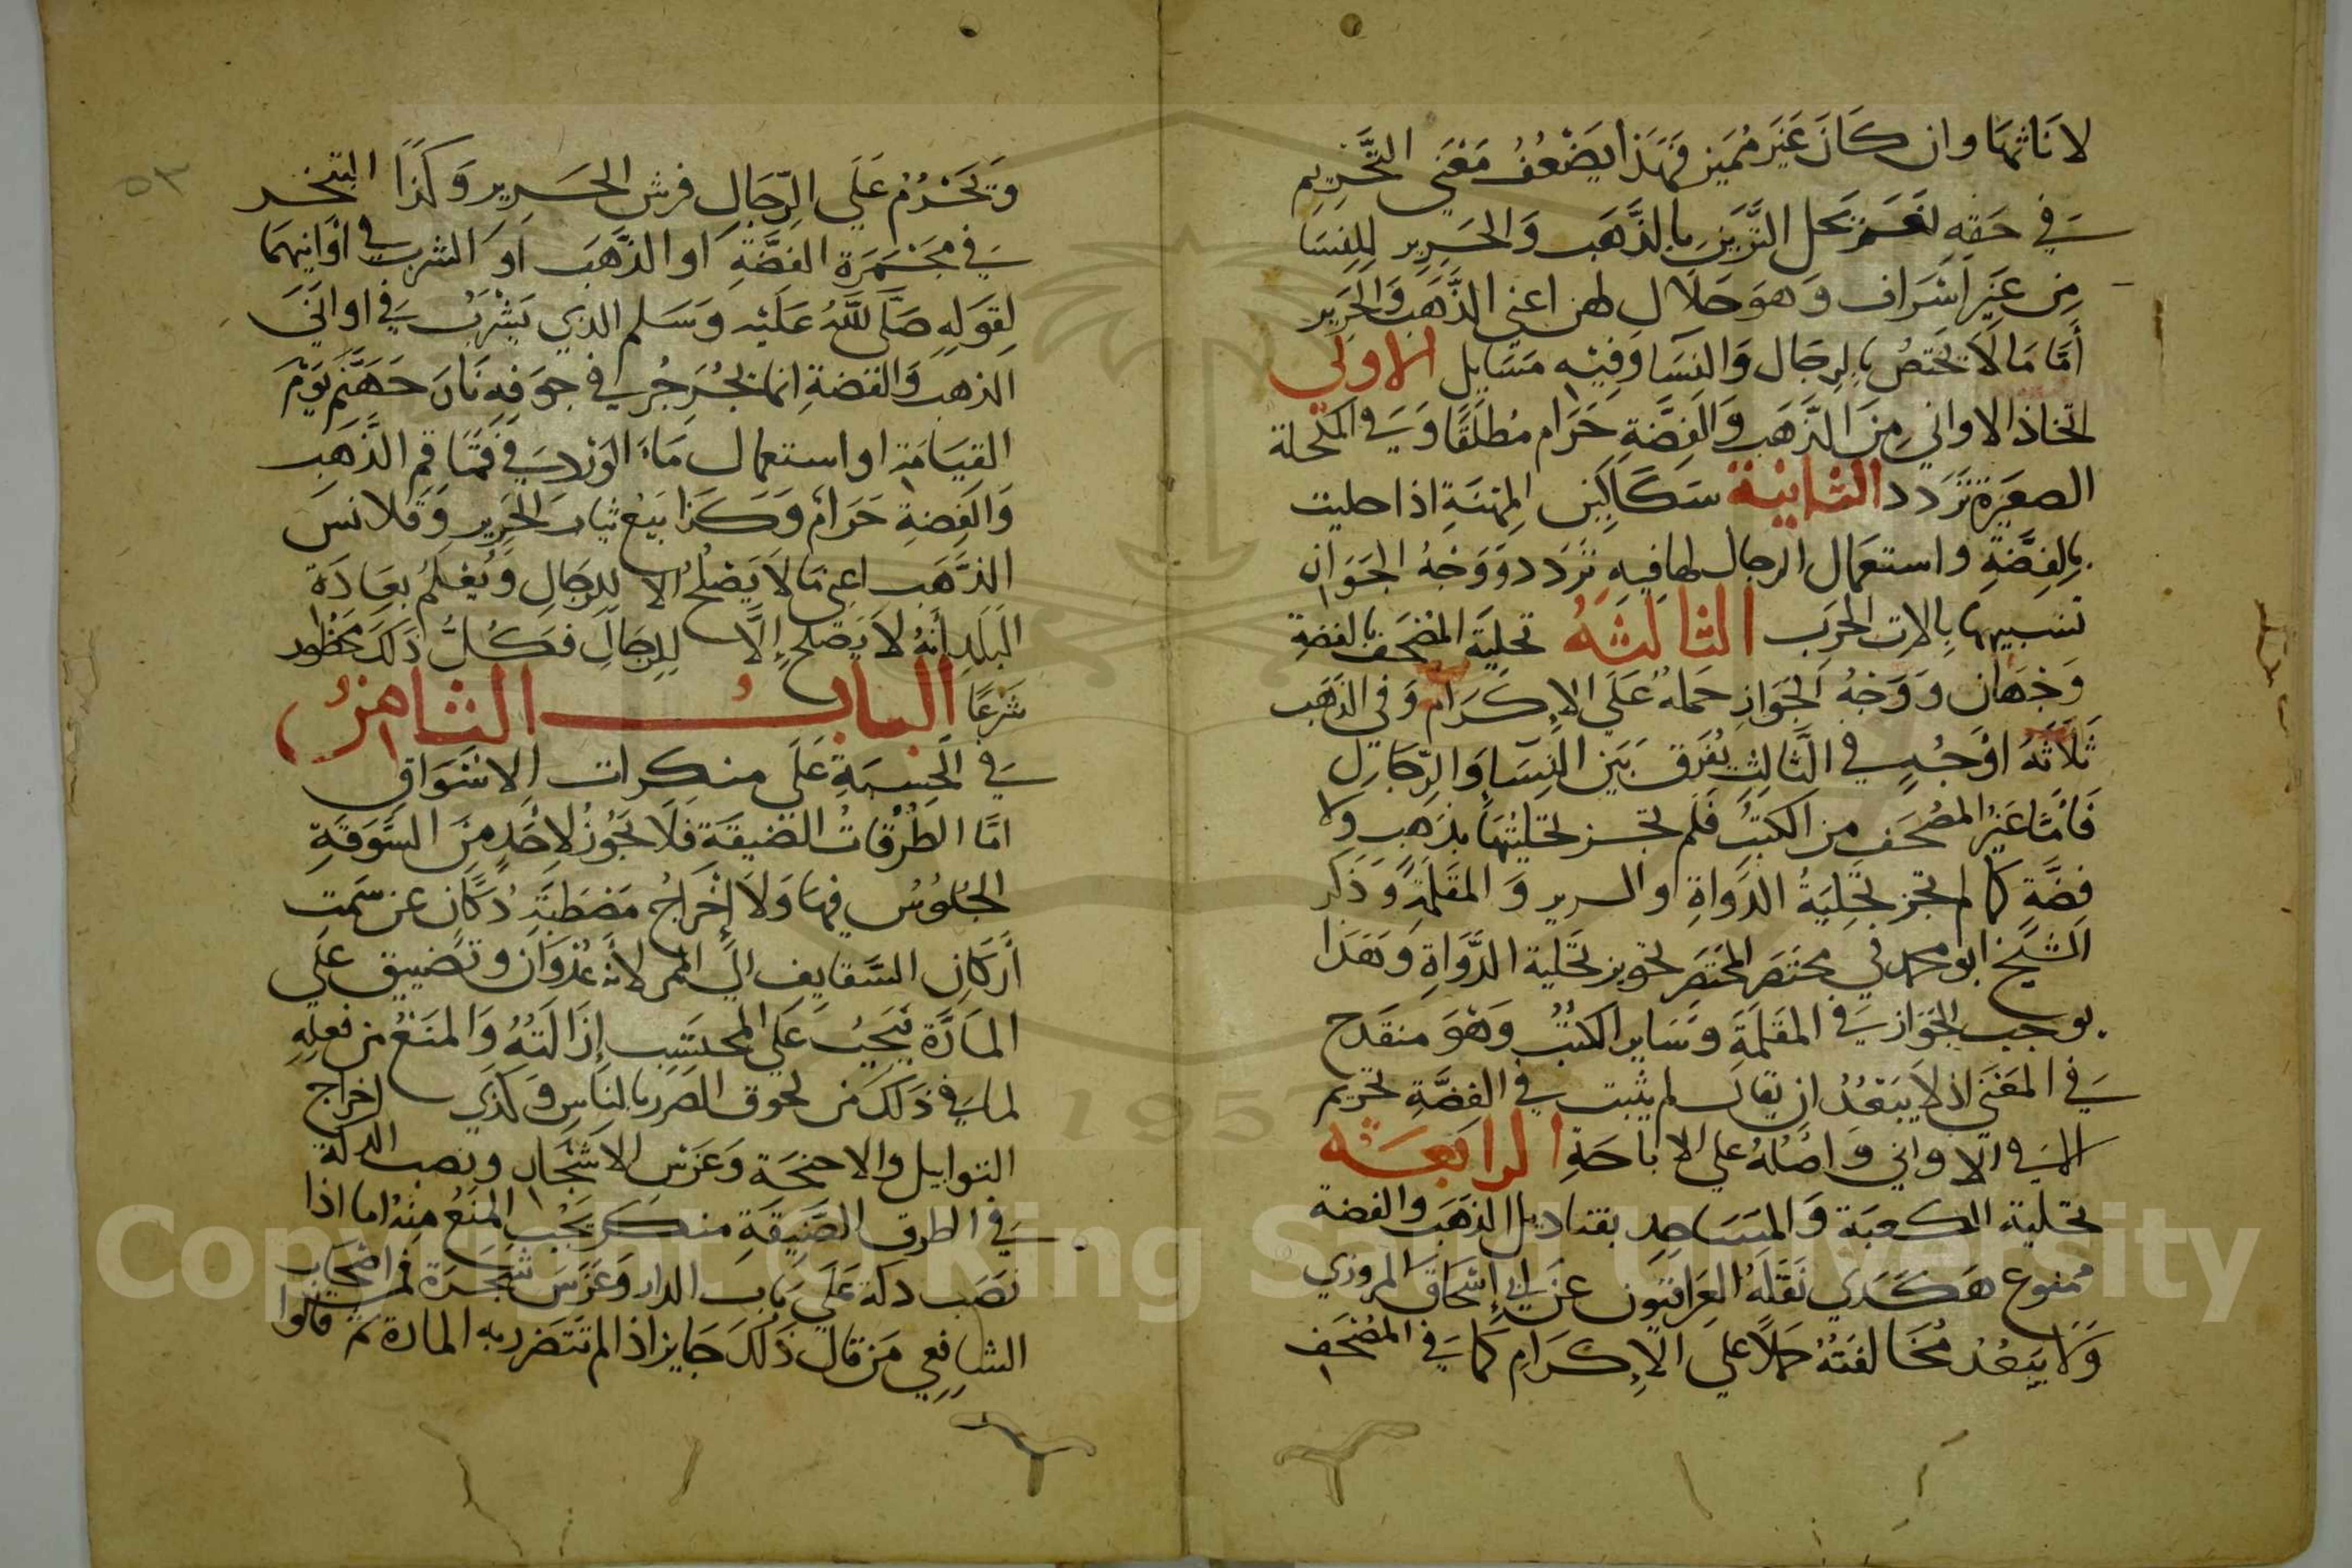 لاناثها وان كان غير مميز فهذا يضعف معنى التحريم
في حقه نعم يحل التزين بالذهب والحرير للنسا
من غير اسراف وهو حلال لهن اعني الذهب والحرير
أما ما لا يختص بالرجال والنسا وفيه مسايل الاولى
اتخاذ الاواني من الذهب والفضة حرام مطلقا وفي المكحلة
الصغيرة تردد الثانية سكاكين المهنة اذا حليت
بالفضة واستعمال الرجال لها فيه تردد ووجه الجواز
تشبيهها بالات الحرب الثالثة تحلية المصحف بالفضة
وجهان ووجه الجواز حمله على الاكرام وفي الذهب
ثلاثة اوجه في الثالث يفرق بين النساء والرجال
فأما غير المصحف من الكتب فلم تجز تحليتها بذهب ولا
فضة كما لم تجز تحلية الدواة والسرير والمقلمة وذكر
الشيخ ابو محمد في مختصر المختصر تجويز تحلية الدواة وهذا
يوجب الجواز في المقلمة وساير الكتب وهو منقدح
في المعنى اذ لا يبعد ان يقال لم يثبت في الفضة تحريم
الا في الاواني واصله على الاباحة الرابعة
تحلية الكعبة والمساجد بقناديل الذهب والفضة
ممنوع هكدي نقله العراقيون عن ابي إسحاق المروزي
ولا يبعد مخالفته حملا على الإكرام كما في المصحف
٥٣
ويحرم على الرجال فرش الحرير وكذا التبخر
في مجمرة الفضة او الذهب او الشرب في اوانيهما
لقوله صلى الله عليه وسلم الذي يشرب في اواني
الذهب والفضة انما يجرجر في جوفه نار جهنم يوم
القيامة او استعمال ماء الورد في قماقم الذهب
والفضة حرام وكذا بيع ثياب الحرير وقلانس
الذهب اعني ما لا يصلح الا للرجال ويعلم بعادة
البلد أنه لا يصلح إلا للرجال فكل ذلك محظور
شرعا الباب الثامن
في الحسبة على منكرات الاسواق
اما الطرقات الضيقة فلا يجوز لاحد من السوقة
الجلوس فيها ولا إخراج مصطبة دكان عن سمت
أركان السقايف الي الممر لأنه عدوان وتضييق على
المارة يجب على المحتسب إزالته والمنع من فعله
لما في ذلك من لحوق الضرر بالناس وكذي اخراج
التوابيل والاجنحة وغرس الاشجار ونصب الدكة
في الطرق الضيقة منكر يجب المنع منه اما اذا
نصب دكة على باب الدار وغرس شجرة فمن اصحاب
الشافعي من قال ذلك جايز اذا لم تتضرر به المارة كما قالوا